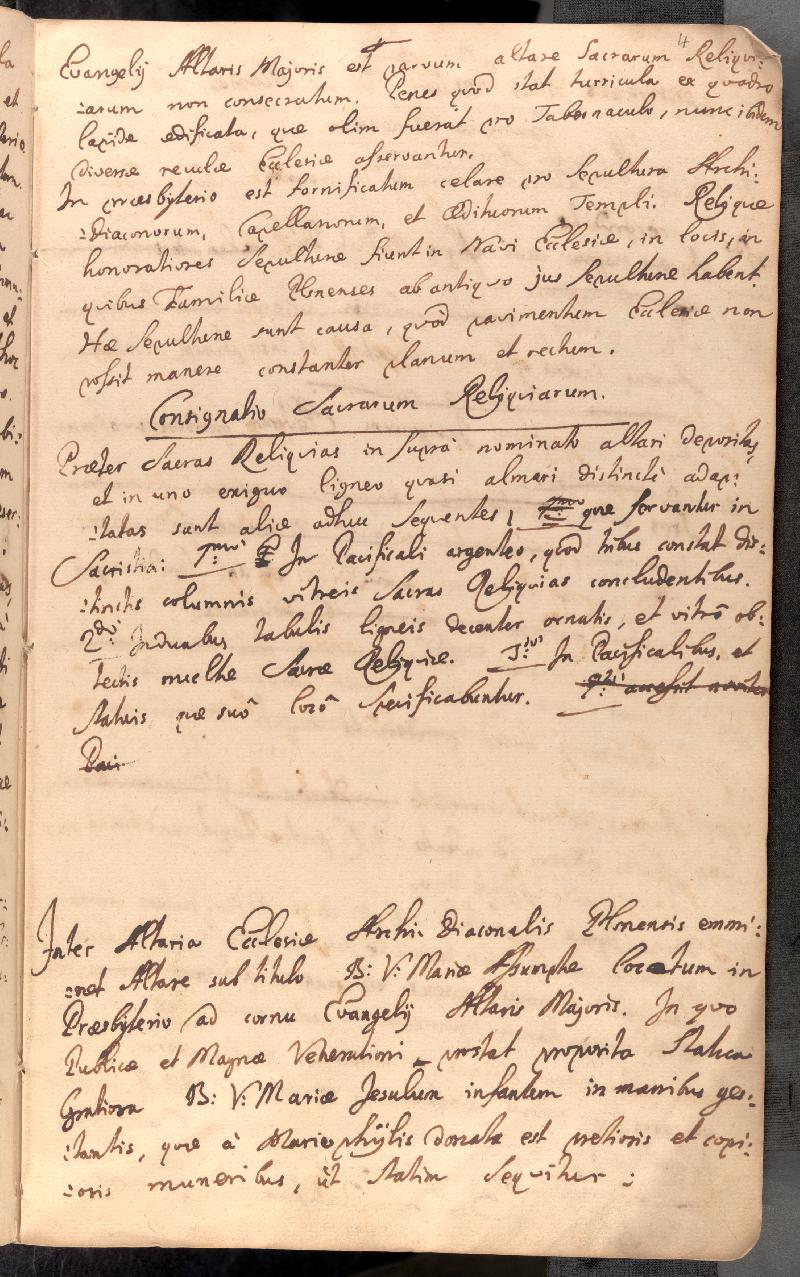 4
Evangelij Altaris Majoris est parvum altare Sacrarum Reliqvi:
:arum non consecratum. Penes qvod stat turricula ex qvadro
lapide ædificata, quæ olim fuerat pro Tabernaculo, nunc ibidem
diversæ reculæ Ecclesiæ asservantur.
In præsbyterio est fornificatum celare pro Sepultura Archi:
:Diaconorum, Capellanorum, et Ædituorum Templi. Reliqvæ
honoratiores Sepulturæ fiunt in Navi Ecclesiæ, in locis, in
qvibus Familiæ Plnenses ab antiqvo jus Sepulturæ habent.
Hæ Sepulturæ sunt causa, qvod pavimentum Ecclesiæ non
possit manere constanter planum et rectum.
Consignatio Sacrarum Reliqviarum.
Præter Sacras Reliqvias in suprà nominato altari depositas,
et in uno exiguo ligneo quasi almari distinctè adap:
:tatas sunt aliæ adhuc seqventes, quæ servantur in
Sacristia: 1mo: In Pacificali argenteo, qvod tribus constat dis:
:tinctis columnis vitreis Sacras Reliqvias concludentibus.
2do: In duabus tabulis ligneis decenter ornatis, et vitrô ob:
tectis multæ Sacræ Reliqviæ. 3tio: In Pacificalibus, et
statuis quæ suô locô specificabuntur. 4to: accessit noviter
Paci
Inter Altaria Ecclesiæ Archi-Diaconalis Plnensis emmi:
:net Altare sub titulo B: V: Mariæ Assumptæ locatum in
Præsbyterio ad cornu Evangelij Altaris Majoris. In quo
Publicæ et Magnæ Venerationi prostat proposita Statua
Gratiosa B: V: Mariæ Jesulum infantem in manibus ges:
:tantis, quæ à Mariophylis donata est pretiosis et copi:
:osis muneribus, ùt statim seqvitur: